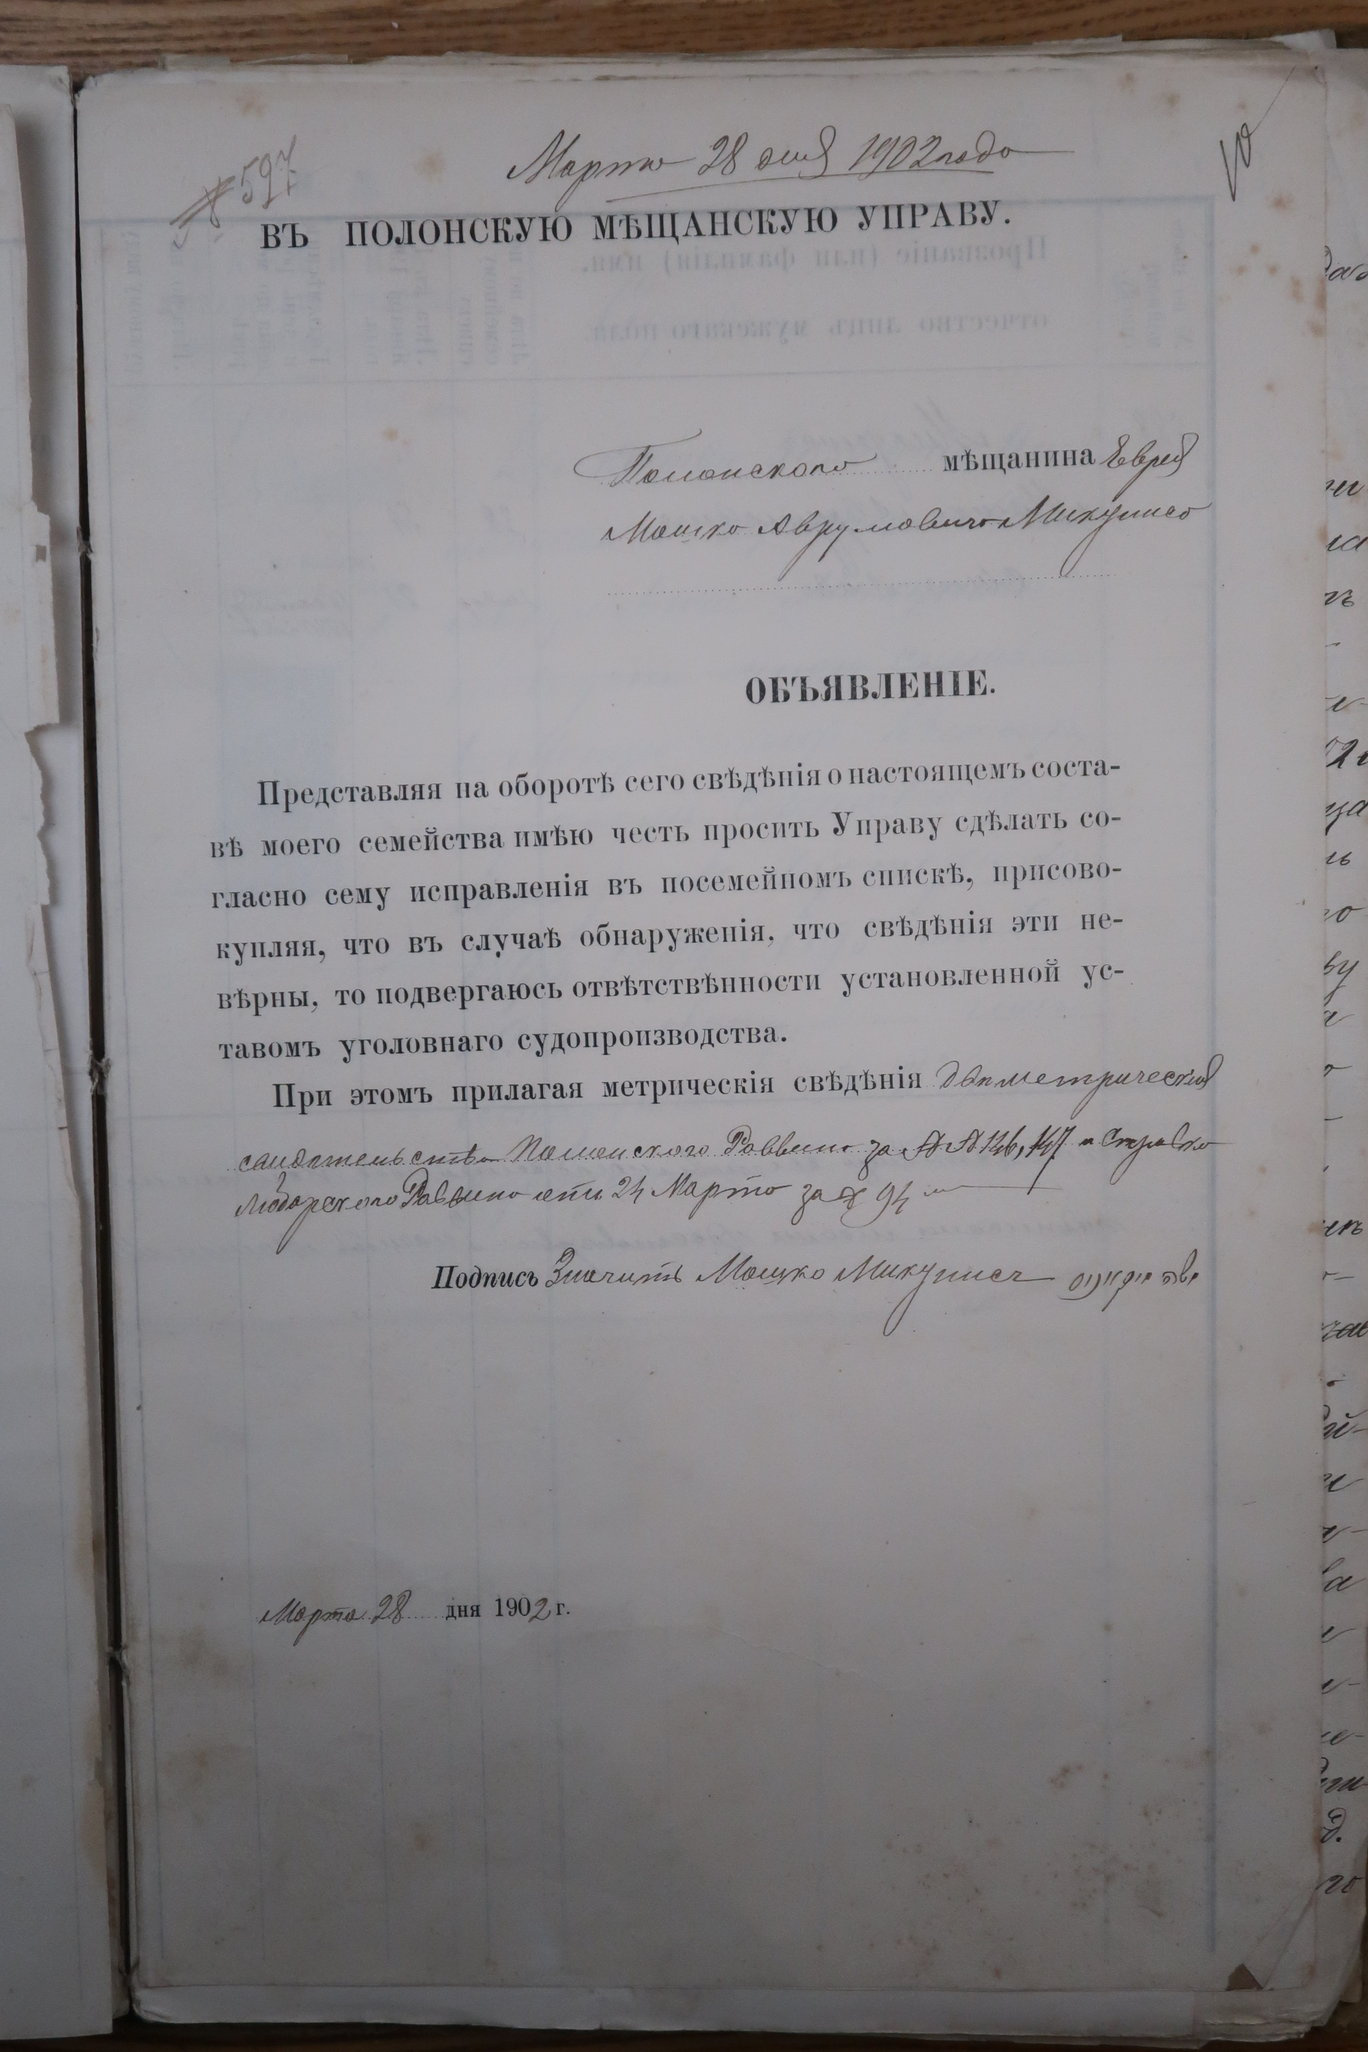 № 597
Марта 28 дня 1902 года
10
ВЪ ПОЛОНСКУЮ МѢЩАНСКУЮ УПРАВУ.
Полонскаго мѣщанина Еврея
Мошко Аврумовича Микуниса
ОБЪЯВЛЕНІЕ.
Представляя на оборотѣ сего свѣдѣнія о настоящемъ соста-
вѣ моего семейства имѣю честь просить Управу сдѣлать со-
гласно сему исправленія въ посемейномъ спискѣ, присово-
купляя, что въ случаѣ обнаруженія, что свѣдѣнія эти не-
вѣрны, то подвергаюсь отвѣтствѣнности установленной ус-
тавомъ уголовнаго судопроизводства.
При этомъ прилагая метрическія свѣдѣнія два метрическія
свидѣтельства Полонскаго Раввина за №№ 146, 147 и Справка
Любарскаго Раввина отъ 24 Марта за № 94
Подпись Значитъ Мошко Микунисъ
Марта 28 дня 1902 г.